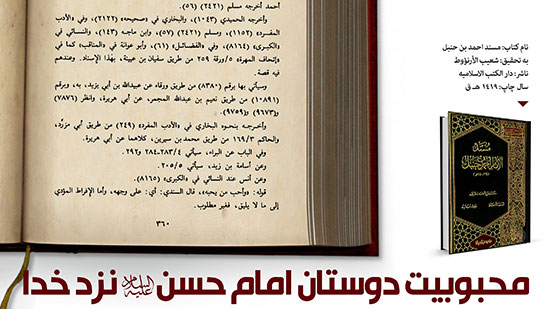 أحمد أخرجه مسلم (٢٤٢١) (٥٦).
وأخرجه الحميدي (١٠٤٣)، والبخاري في «صحيحه» (٢١٢٢)، وفي «الأدب
المفرد» (١١٥٢)، ومسلم (٢٤٢١) (٥٧)، وابن ماجه (١٤٢)، والنسائي في
«الكبرى» (٨١٦٤)، وفي «الفضائل» (٦١)، وأبو عوانة في «المناقب» كما في
«إتحاف المهرة» ٥/ورقة ٢٥٩ من طريق سفيان بن عيينة، بهذا الإسناد. وعندهم
فيه قصة.
وسيأتي بها برقم (٨٣٨٠) من طريق ورقاء عن عبيدالله بن أبي يزيد، به، وبرقم
(١٠٨٩١) من طريق نعيم بن عبدالله المجمر، عن أبي هريرة، وانظر (٧٨٧٦)
و(٩٦٧٣) و(٩٧٥٩).
وأخرجه بنحوه البخاري في «الأدب المفرد» (٢٤٩) من طريق أبي مزرِّد،
والحاكم ١٦٩/٣ من طريق محمد بن سيرين، كلاهما عن أبي هريرة.
وفي الباب عن البراء، سيأتي ٢٨٣/٤-٢٨٤ و٢٩٢.
وعن أسامة بن زيد، سيأتي ٢٠٥/٥.
وعن أنس عند النسائي في «الكبرى» (٨١٦٥).
قوله: «وأحب من يحبه»، قال السندي: أي: على وجهه، وأما الإفراط المؤدي
إلى ما لا يليق، فغير مطلوب.
٣٦٠
نام کتاب: مسند احمد بن حنبل
به تحقیق: شعیب الأرنؤوط
ناشر: دار الکتب الاسلامیه
سال چاپ: ۱۴۱۹ هـ ق
مسند
الإمام أحمد بن حنبل
محبوبیت دوستان امام حسن علیه السلام نزد خدا